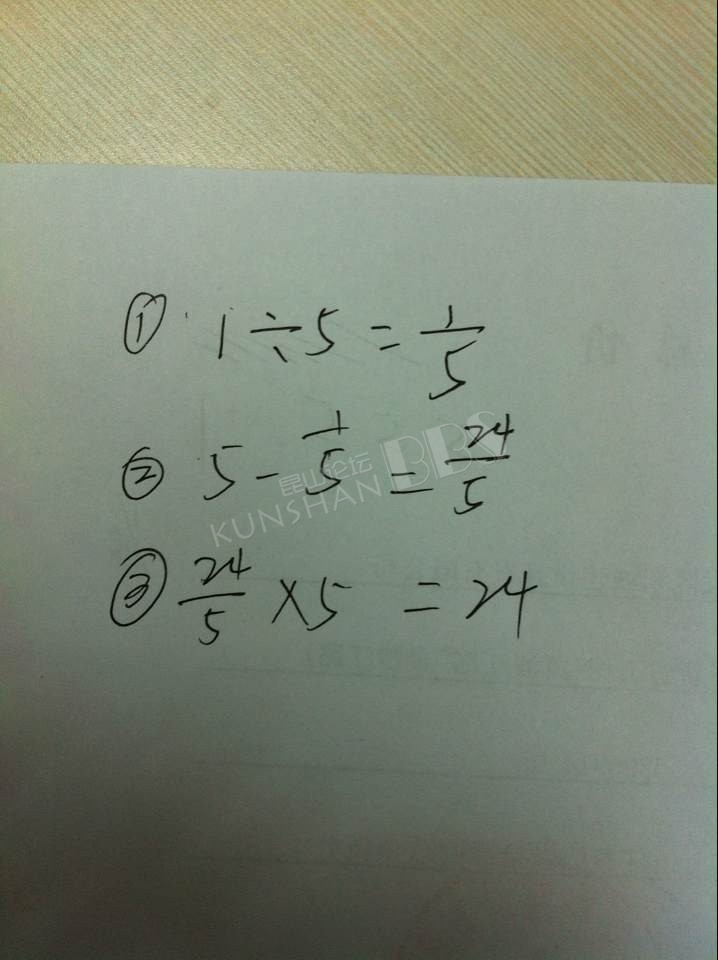 ① 1÷5=1/5
② 5-1/5=24/5
③ 24/5×5=24
昆山论坛 BBS
KUNSHAN